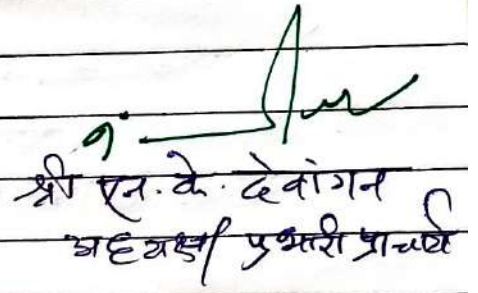 श्री एन. के. देवांगन
अध्यक्ष/ प्रभारी प्राचार्य